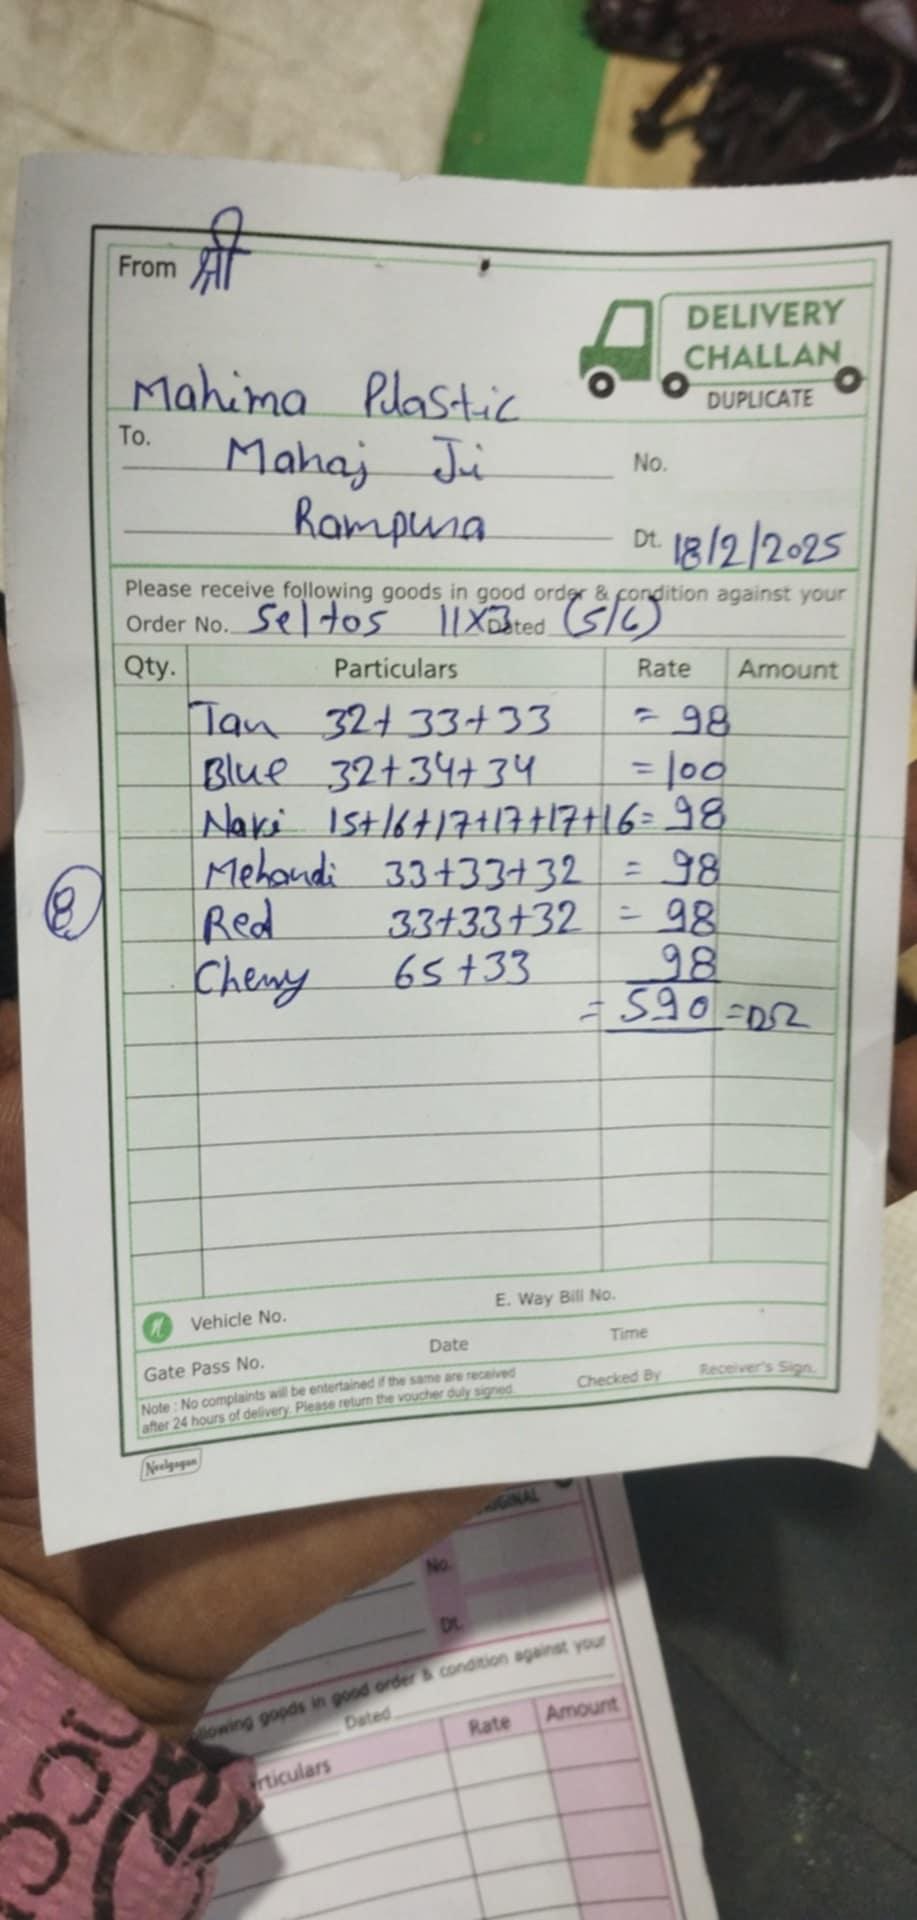 From श्री
DELIVERY
CHALLAN
DUPLICATE
Mahima Pulastic
To. Mahaj Ji
No.
Rampura
Dt. 18/2/2025
Please receive following goods in good order & condition against your
Order No. Seltos 11X3 Dated (5/6)
Qty. Particulars Rate Amount
Tan 32+33+33 = 98
Blue 32+34+34 = 100
Navi 15+16+17+17+17+16= 98
Mehandi 33+33+32 = 98
8
Red 33+33+32 = 98
Cherry 65+33 98
= 590
Vehicle No. E. Way Bill No.
Gate Pass No. Date Time
Note : No complaints will be entertained if the same are received
after 24 hours of delivery. Please return the voucher duly signed.
Checked By Receiver's Sign.
Neelgagan
No.
Dt.
goods in good order & condition against your
Dated
Rate Amount